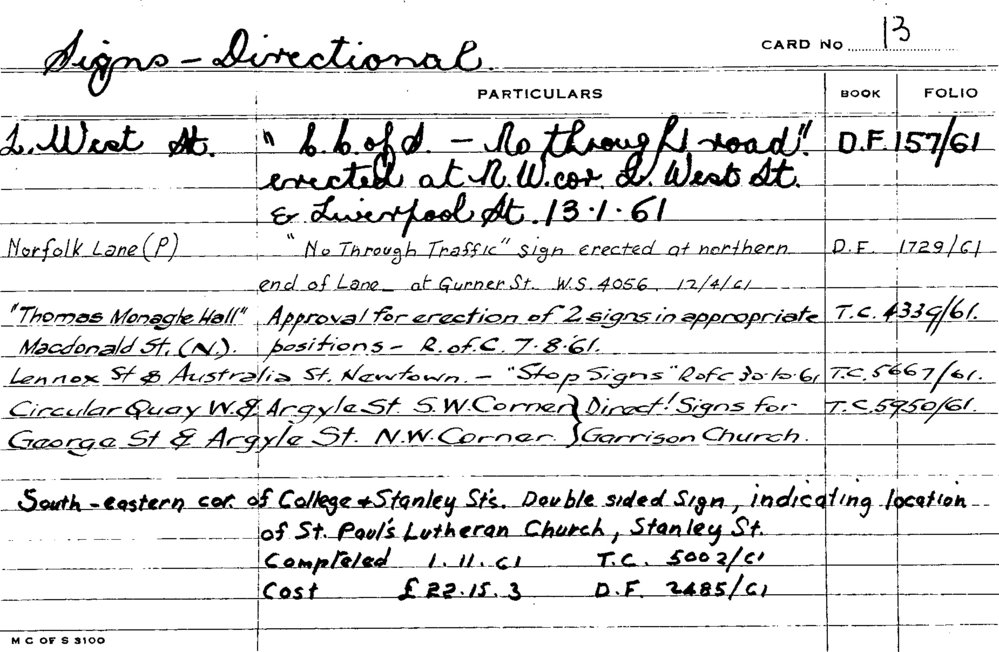 Signs - Directional.
CARD No 13
PARTICULARS BOOK FOLIO
L. West St. "C.C. of S. - No through road" D.F. 157/61
erected at N.W. cor. L. West St.
& Liverpool St. 13.1.61
Norfolk Lane (P) "No Through Traffic" sign erected at northern D.F. 1729/61
end of Lane - at Gurner St. W.S. 4056 12/4/61
"Thomas Monagle Hall" Approval for erection of 2 signs in appropriate T.C. 4339/61.
Macdonald St. (N.). positions - R. of C. 7.8.61.
Lennox St & Australia St. Newtown. - "Stop Signs" R of C 30.10.61 T.C. 5667/61.
Circular Quay W. & Argyle St S.W. Corner } Direct! Signs for T.C. 5950/61.
George St & Argyle St. N.W. Corner. } Garrison Church.
South-eastern cor. of College & Stanley Sts. Double sided Sign, indicating location
of St. Paul's Lutheran Church, Stanley St.
Completed 1.11.61 T.C. 5002/61
Cost £22.15.3 D.F. 2485/61
M C OF S 3100